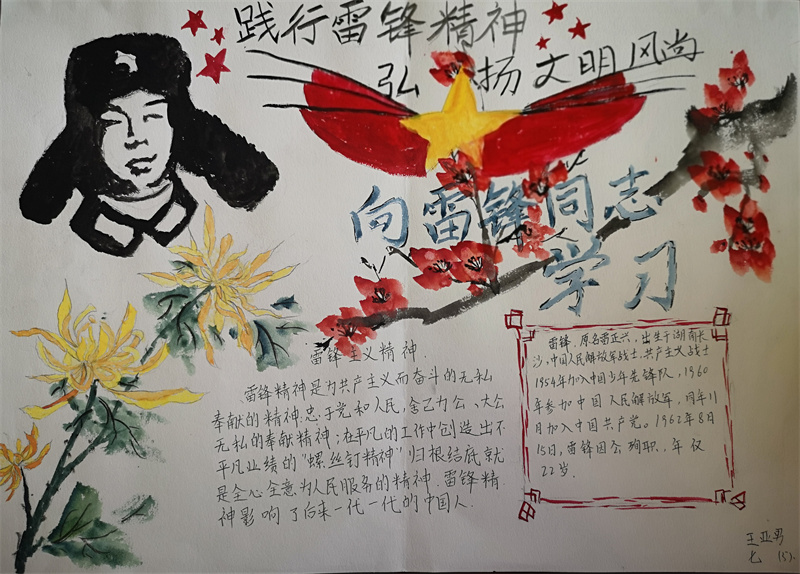 践行雷锋精神
弘扬文明风尚
向雷锋同志
学习
雷锋主义精神
雷锋精神是为共产主义而奋斗的无私
奉献的精神.忠于党和人民,舍己为公、大公
无私的奉献精神;在平凡的工作中创造出不
平凡业绩的“螺丝钉精神”归根结底就
是全心全意为人民服务的精神.雷锋精
神影响了后来一代一代的中国人.
雷锋,原名雷正兴,出生于湖南长
沙,中国人民解放军战士,共产主义战士
1954年加入中国少年先锋队,1960
年参加中国人民解放军,同年11
月加入中国共产党。1962年8月
15日,雷锋因公殉职,年仅
22岁.
王亚男
七(5).